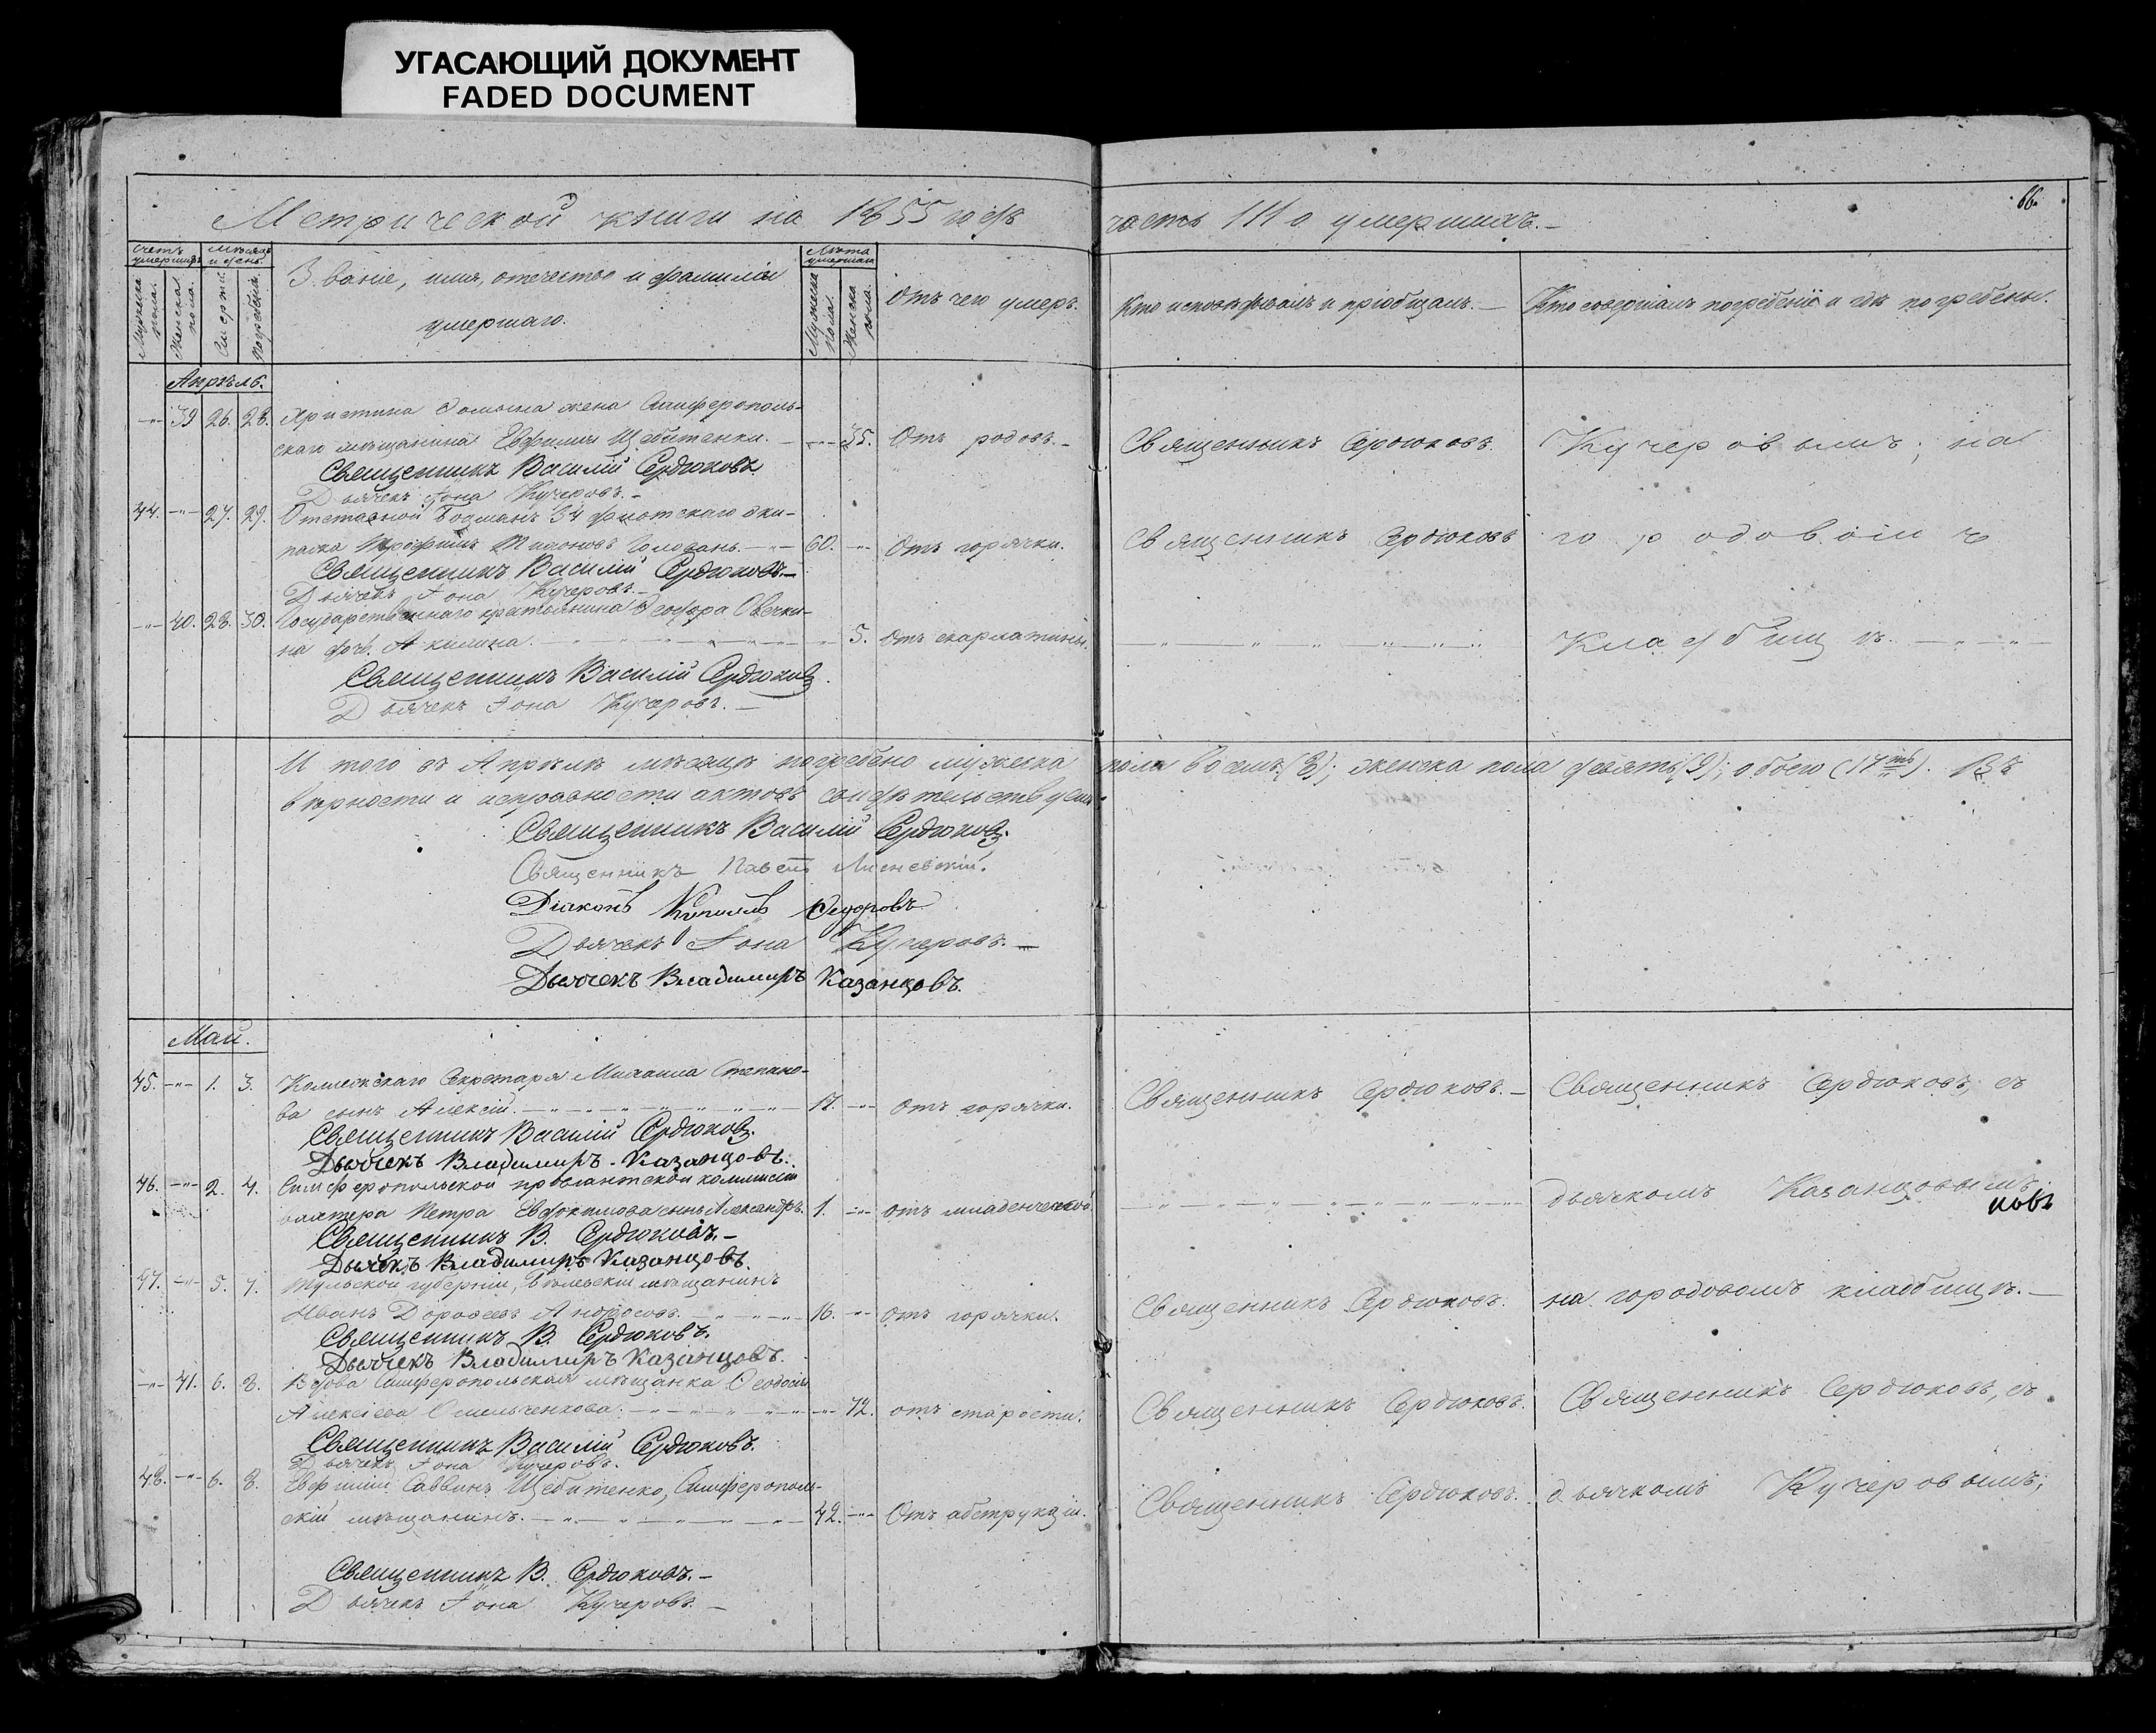 УГАСАЮЩИЙ ДОКУМЕНТ
FADED DOCUMENT
Метрической книги на 1855 годъ часть III о умершихъ.
66.
Счетъ умершихъ
Мужеска пола.
Женска пола.
Мѣсяцъ и день.
Смерти.
Погребенія.
Званіе, имя, отечество и фамилія
умершаго.
Лѣта умершаго
Мужеска пола.
Женска пола.
Отъ чего умеръ.
Кто исповѣдывалъ и пріобщалъ.
Кто совершалъ погребеніе и гдѣ погребены.
Апрѣль.
39 26. 28. Христина Фомина жена Симферополь-
скаго мѣщанина Евфимія Щебитенки. 35. Отъ родовъ. Священникъ Сердюковъ. Кучеровымъ, на
Священникъ Василій Сердюковъ
Дьячекъ Іона Кучеровъ.
44. 27. 29. Отставной Боцманъ 34 флотскаго эки-
пажа Трофимъ Тихоновъ 60. Отъ горячки. Священникъ Сердюковъ городовомъ
Священникъ Василій Сердюковъ.
Дьячекъ Іона Кучеровъ.
40. 28. 30. Государственнаго крестьянина Феодора Овечки-
на дочь Акилина. 5. Отъ скарлатины. Кладбищѣ.
Священникъ Василій Сердюковъ.
Дьячекъ Іона Кучеровъ.
И того въ Апрѣлѣ мѣсяцѣ погребено мужеска пола восемь (8); женска пола девять (9); обоего (17ть). Въ
вѣрности и исправности актовъ свидѣтельствуемъ
Священникъ Василій Сердюковъ.
Священникъ Павелъ
Діаконъ Кириллъ Федоровъ
Дьячекъ Іона Кучеровъ.
Дьячекъ Владимиръ Казанцовъ.
Май.
45. 1. 3. Коллежскаго Секретаря Михаила Степано-
ва сынъ Алексій. 17. Отъ горячки. Священникъ Сердюковъ. Священникъ Сердюковъ, съ
Священникъ Василій Сердюковъ.
Дьячекъ Владимиръ Казанцовъ.
46. 2. 4. Симферопольской провіантской коммисіи
вахтера Петра Евдокимова сынъ Александръ. 1. Отъ младенческой дьячкомъ Казанцовымъ.
новъ
Священникъ В. Сердюковъ.
Дьячекъ Владимиръ Казанцовъ.
47. 5. 7. Тульской губерніи, Бѣлевскій мѣщанинъ
Иванъ Дорофеевъ 16. Отъ горячки. Священникъ Сердюковъ. на городовомъ кладбищѣ.
Священникъ В. Сердюковъ.
Дьячекъ Владимиръ Казанцовъ.
41. 6. 8. Вдова Симферопольская мѣщанка Феодосія
Алексіева Омельченкова. 72. отъ старости. Священникъ Сердюковъ. Священникъ Сердюковъ, съ
Священникъ Василій Сердюковъ.
Дьячекъ Іона Кучеровъ.
48. 6. 8. Евфимій Саввинъ Щебитенко, Симферополь-
скій мѣщанинъ. 42. Отъ абструкціи. Священникъ Сердюковъ. дьячкомъ Кучеровымъ,
Священникъ В. Сердюковъ.
Дьячекъ Іона Кучеровъ.